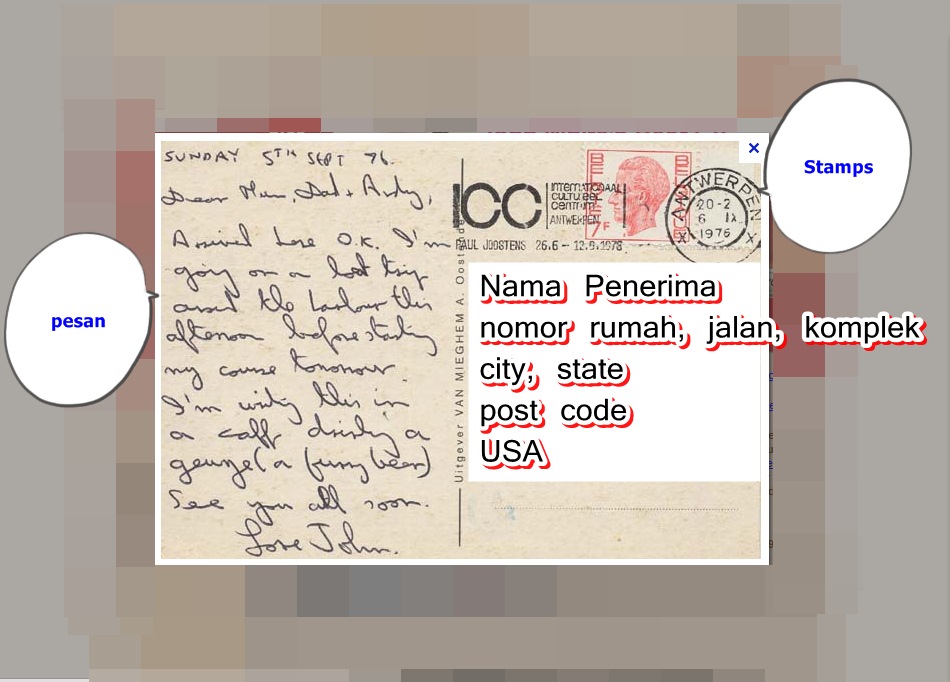 SUNDAY 5TH SEPT 76.
Dear Mum, Dad + Andy,
Arrived here O.K. I'm
going on a boat trip
around the harbour this
afternoon before starting
my course tomorrow.
I'm writing this in
a caff drinking a
geuze (a funny beer)
See you all soon.
Love John.
Uitgever VAN MIEGHEM A. Oostende
ICC
INTERNATIONAAL
CULTUREEL
CENTRUM
ANTWERPEN
PAUL JOOSTENS 26.6 – 12.9.1976
7F
ANTWERPEN
20-21
6 IX
1976
X X
×
Nama Penerima
nomor rumah, jalan, komplek
city, state
post code
USA
pesan
Stamps